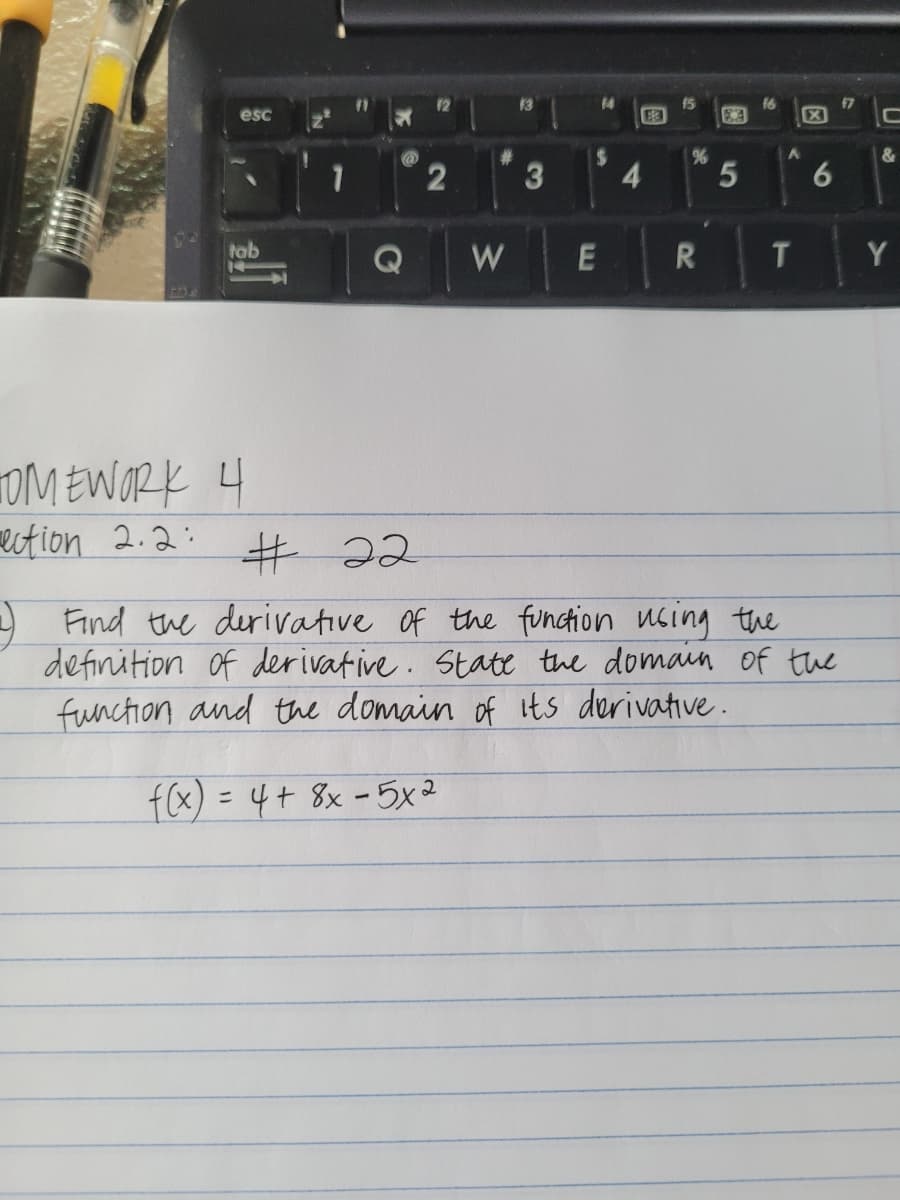 esc f1 f2 f3 f4 f5 f6 f7
! 1 @ 2 # 3 $ 4 % 5 ^ 6 &
tab Q W E R T Y
OMEWORK 4
ection 2.2: # 22
) Find the derivative of the function using the
definition of derivative. State the domain of the
function and the domain of its derivative.
f(x) = 4 + 8x - 5x²